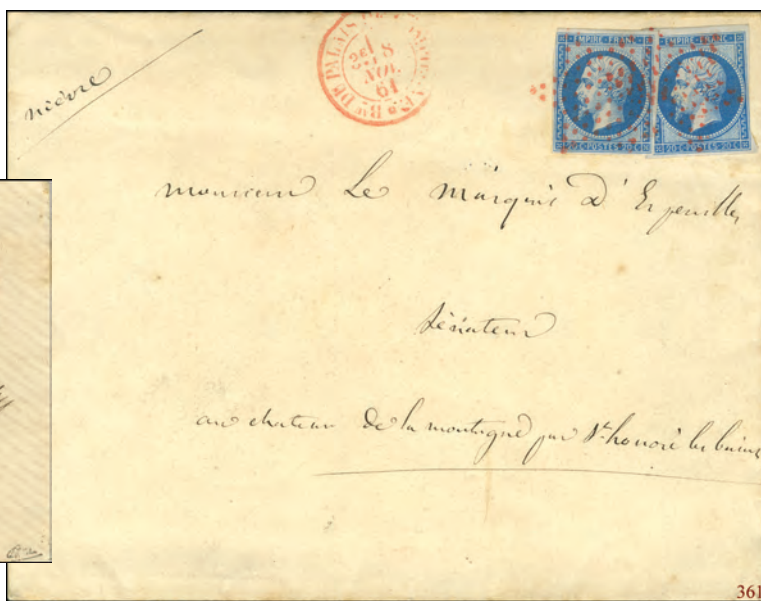 nièvre
Bau DE PALAIS DU
2E
8
NOV.
61
EMPIRE FRANC
20 C·POSTES·20 C
EMPIRE FRANC
20 C·POSTES·20 C
monsieur Le marquis D'Espeuilles
sénateur
au chateau de la montagne par St honoré les bains
361